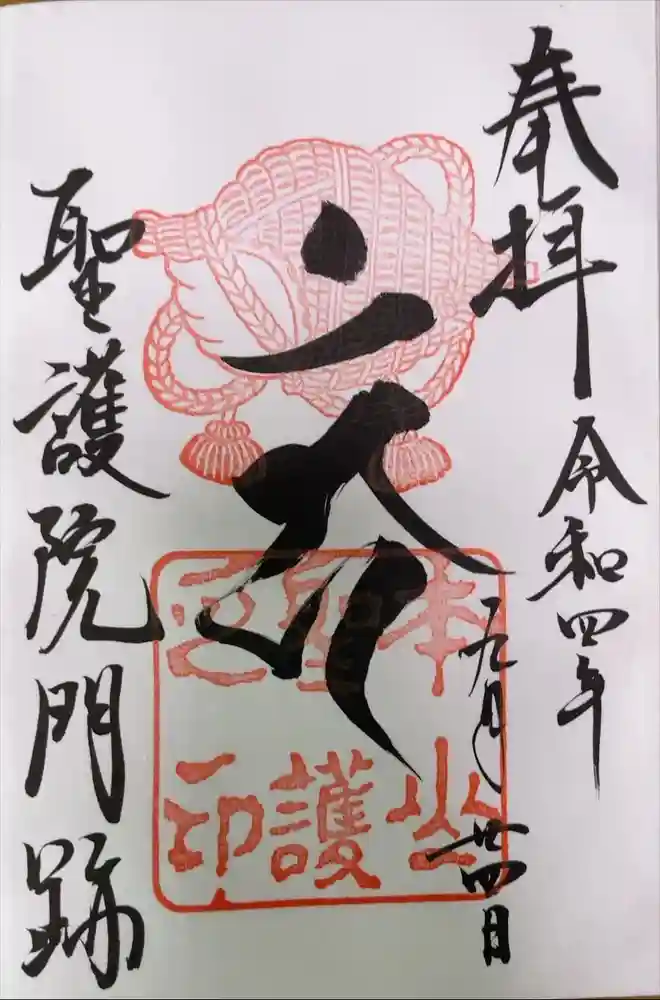 奉拝
令和四年
九月廿四日
聖護院門跡
本山
聖護
之印